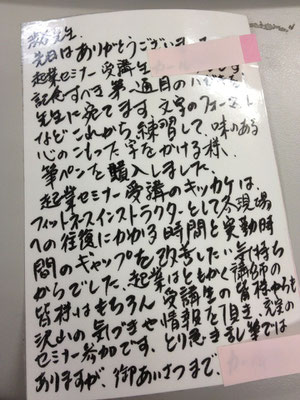 先生、
先日はありがとうございま
起業セミナー受講生 です
記念すべき第1通目のハガキを
先生に宛てます。文字のフォーム
などこれから練習して、味のある
心のこもった字をかける様、
筆ペンを購入しました。
起業セミナー受講のキッカケは
フィットネスインストラクターとして 現場
への往復にかかる時間と実動時
間のギャップを改善したい気持ち
からでした。起業はともかく講師の
皆様はもちろん 受講生の皆様からも
沢山の気づきや情報を頂き、充実の
セミナー参加です。とり急ぎ乱筆では
ありますが、御あいさつまで。